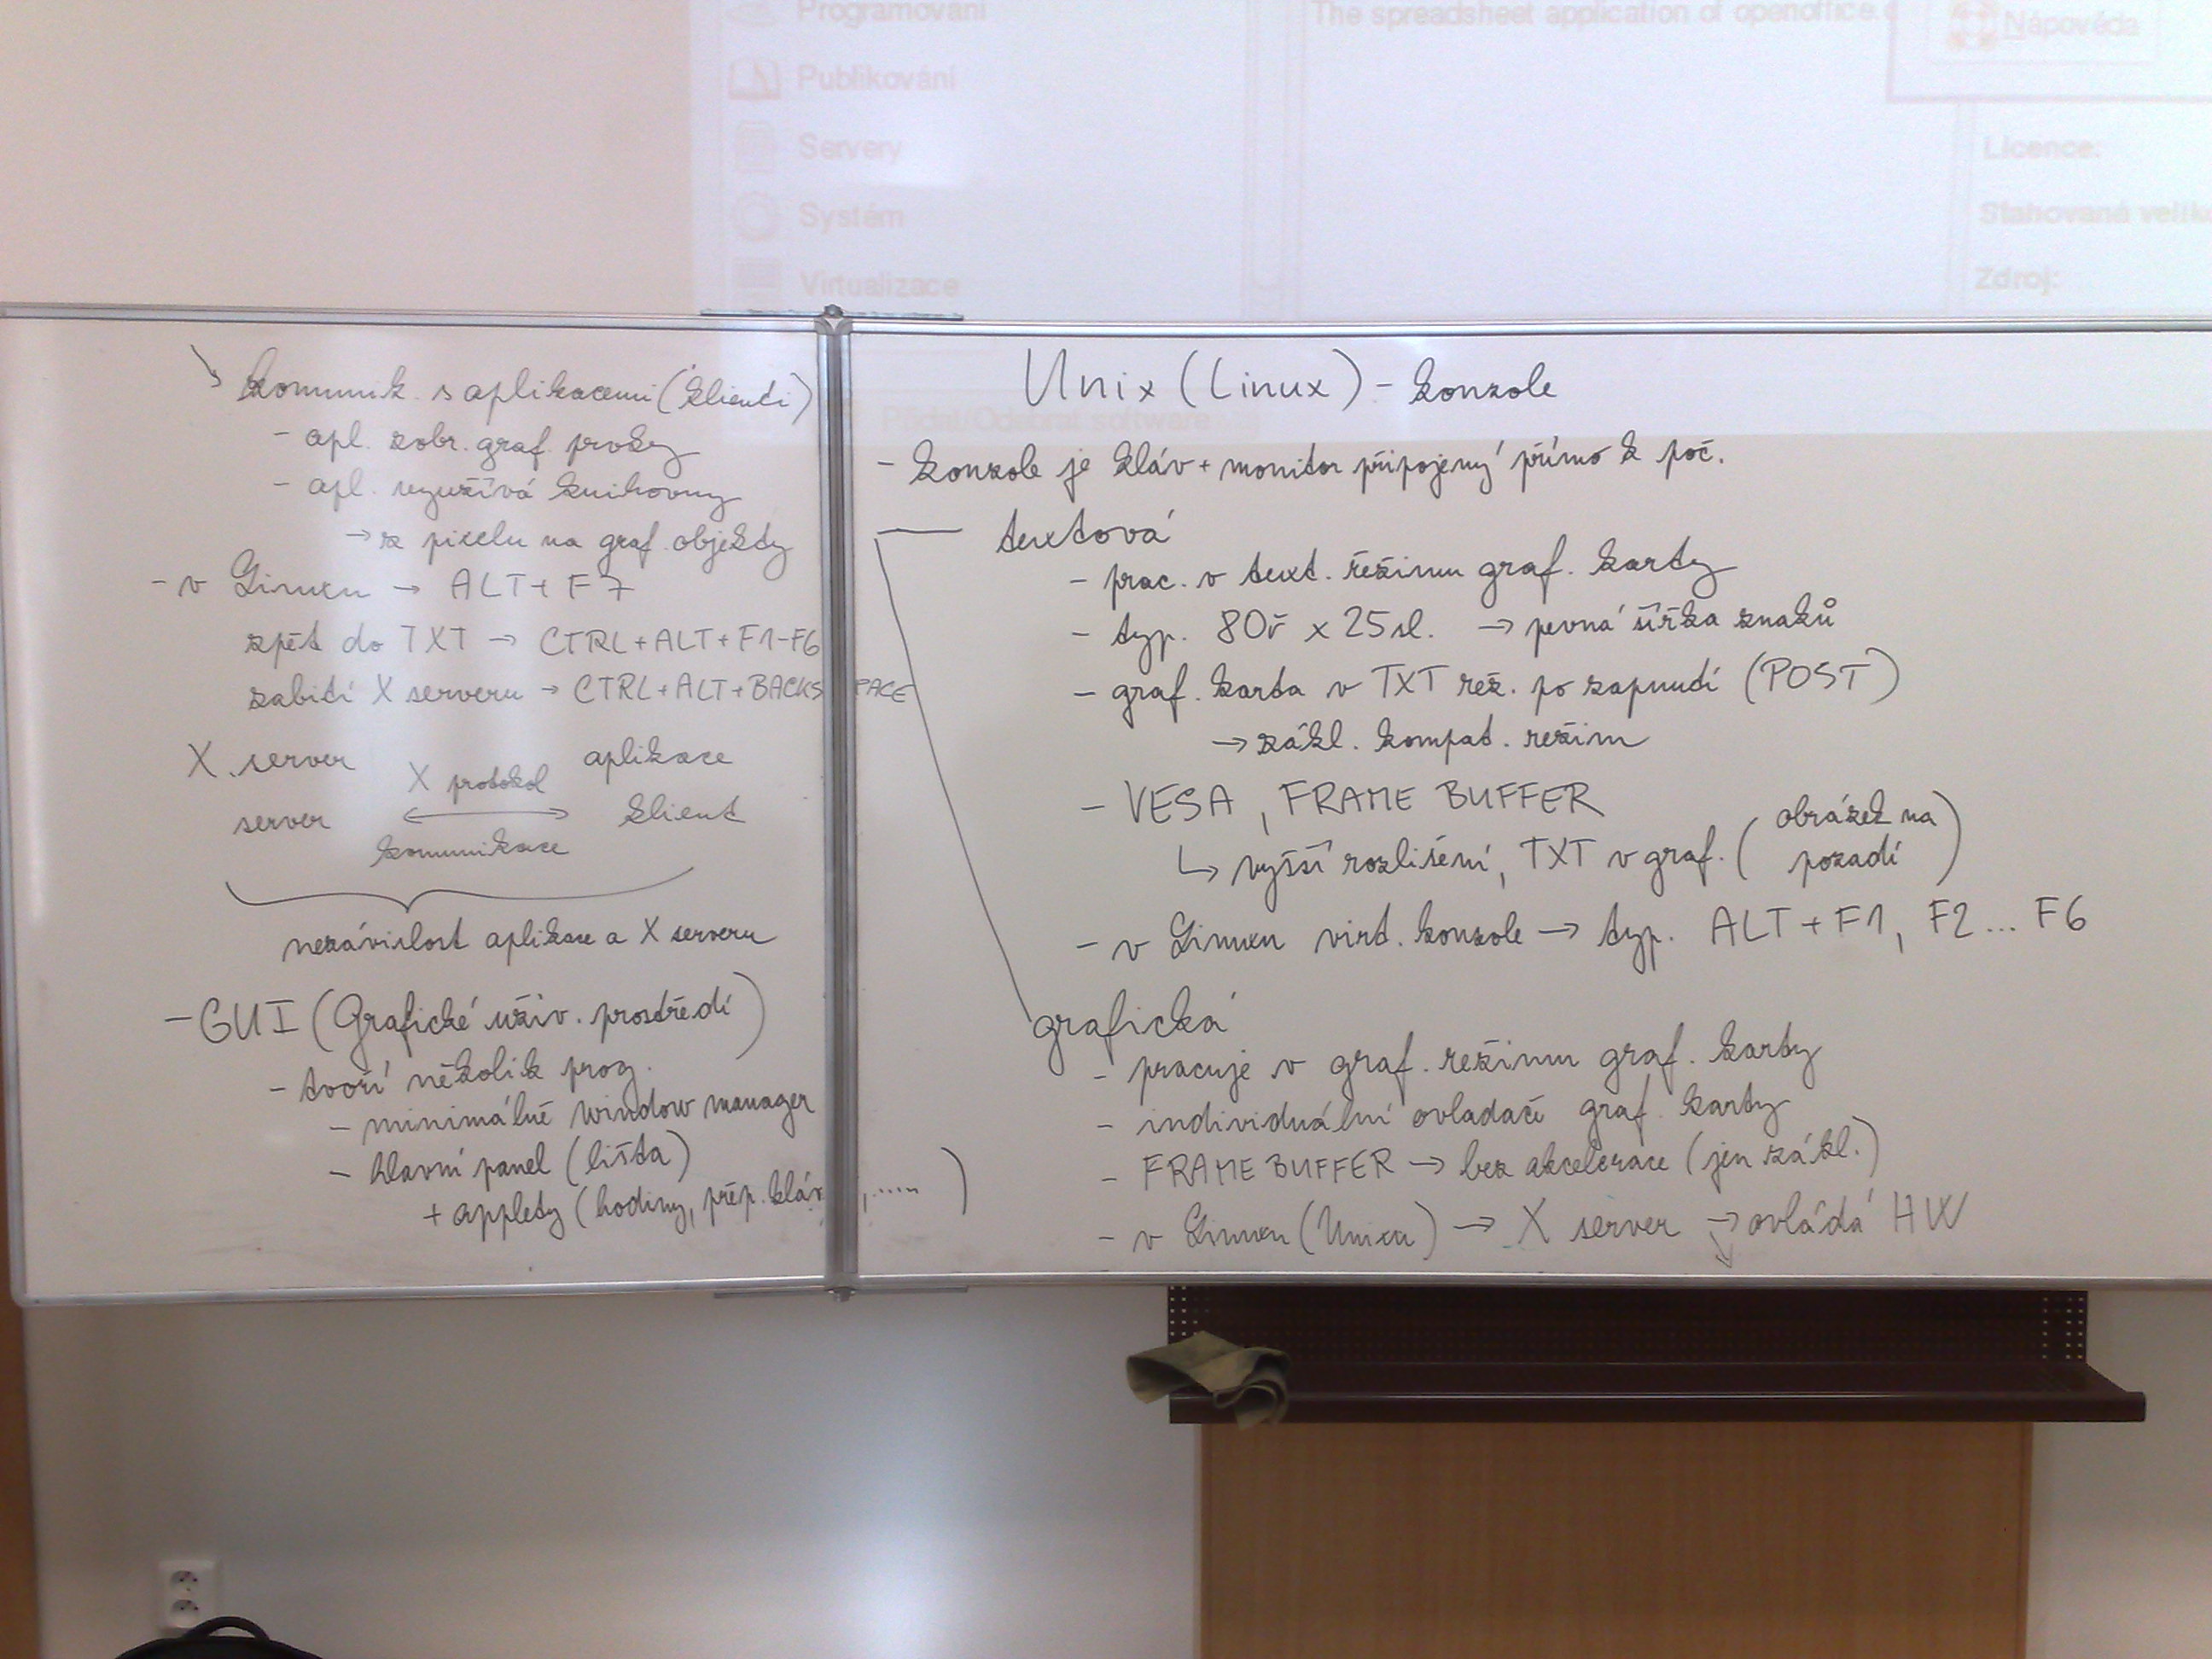 Programování
Publikování
Servery
Systém
Virtualizace
Přidat/Odebrat software
The spreadsheet application of openoffice.
Nápověda
Licence:
Stahovaná velik
Zdroj:
komunik. s aplikacemi (klienti)
- apl. zobr. graf. prvky
- apl. využívá knihovny
→ z pixelu na graf. objekty
- v Linuxu → ALT + F7
zpět do TXT → CTRL+ALT+F1-F6
zabití X serveru → CTRL+ALT+BACKSPACE
X server X protokol aplikace
server ↔ klient
komunikace
nezávislost aplikace a X serveru
- GUI (Grafické uživ. prostředí)
- tvoří několik prog.
- minimálně window manager
- hlavní panel (lišta)
+ applety (hodiny, přep. kláv, .....)
Unix (Linux) - konzole
- konzole je kláv + monitor připojený přímo k poč.
textová
- prac. v text. režimu graf. karty
- typ. 80ř x 25sl. → pevná šířka znaků
- graf. karta v TXT rež. po zapnutí (POST)
→ zákl. kompat. režim
- VESA, FRAME BUFFER
↳ vyšší rozlišení, TXT v graf. (obrázek na
pozadí)
- v Linuxu virt. konzole → typ. ALT + F1, F2 ... F6
grafická
- pracuje v graf. režimu graf. karty
- individuální ovladače graf. karty
- FRAME BUFFER → bez akcelerace (jen zákl.)
- v Linuxu (Unixu) → X server → ovládá HW